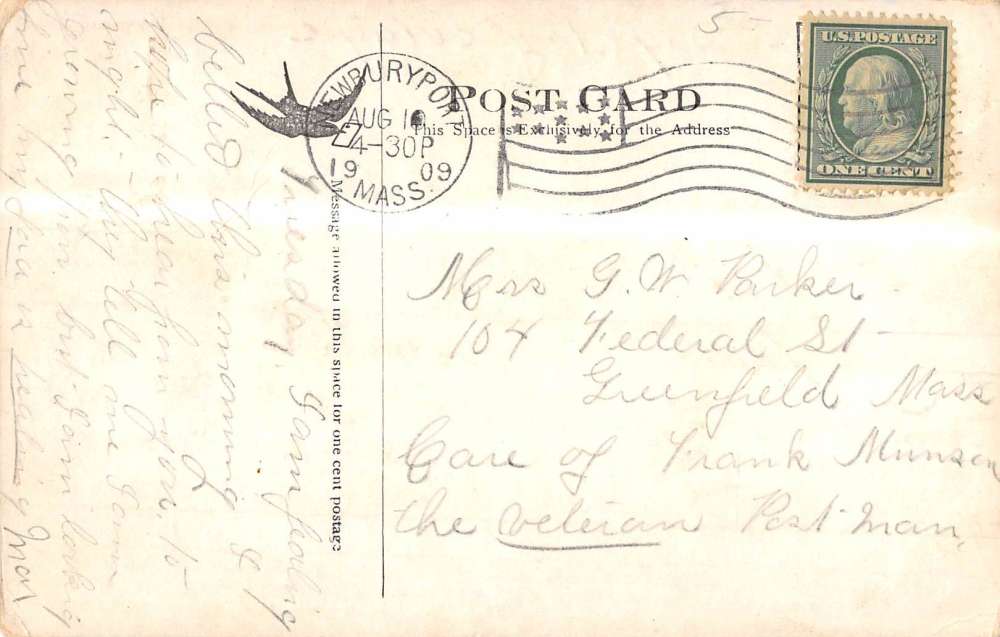 5
U.S. POSTAGE
ONE CENT
NEWBURYPORT
AUG 10
4-30P
1909
MASS.
POST CARD
This Space is Exclusively for the Address
Message allowed in this space for one cent postage
Mrs G. W. Parker
104 Federal St
Greenfield Mass
Care of Frank Munson
the veteran Post-man,
Tuesday, I am feeling
better this morning &
hope to hear from you to
night. They tell me I am
but I am looking